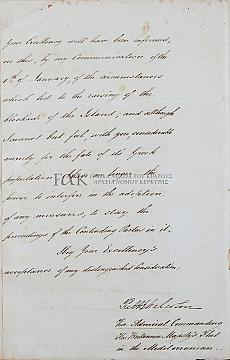 Your Excellency will have been informed,
ere this, by my Communication of the
1st of January, of the circumstances
which led to the raising of the
blockade of the Island; and although
I cannot but feel, with you, considerable
anxiety for the fate of its Greek
population, I have no longer the
ΓΑΚ ΓΕΝΙΚΑ ΑΡΧΕΙΑ ΤΟΥ ΚΡΑΤΟΥΣ
ΑΡΧΕΙΑ ΝΟΜΟΥ ΚΕΡΚΥΡΑΣ
power to interfere in the adoption
of any measures, to stay the
proceedings of the Contending Parties in it.
May Your Excellency's
acceptance of my distinguished Consideration.
Vice Admiral Commanding
His Britannic Majesty's Fleet
in the Mediterranean.